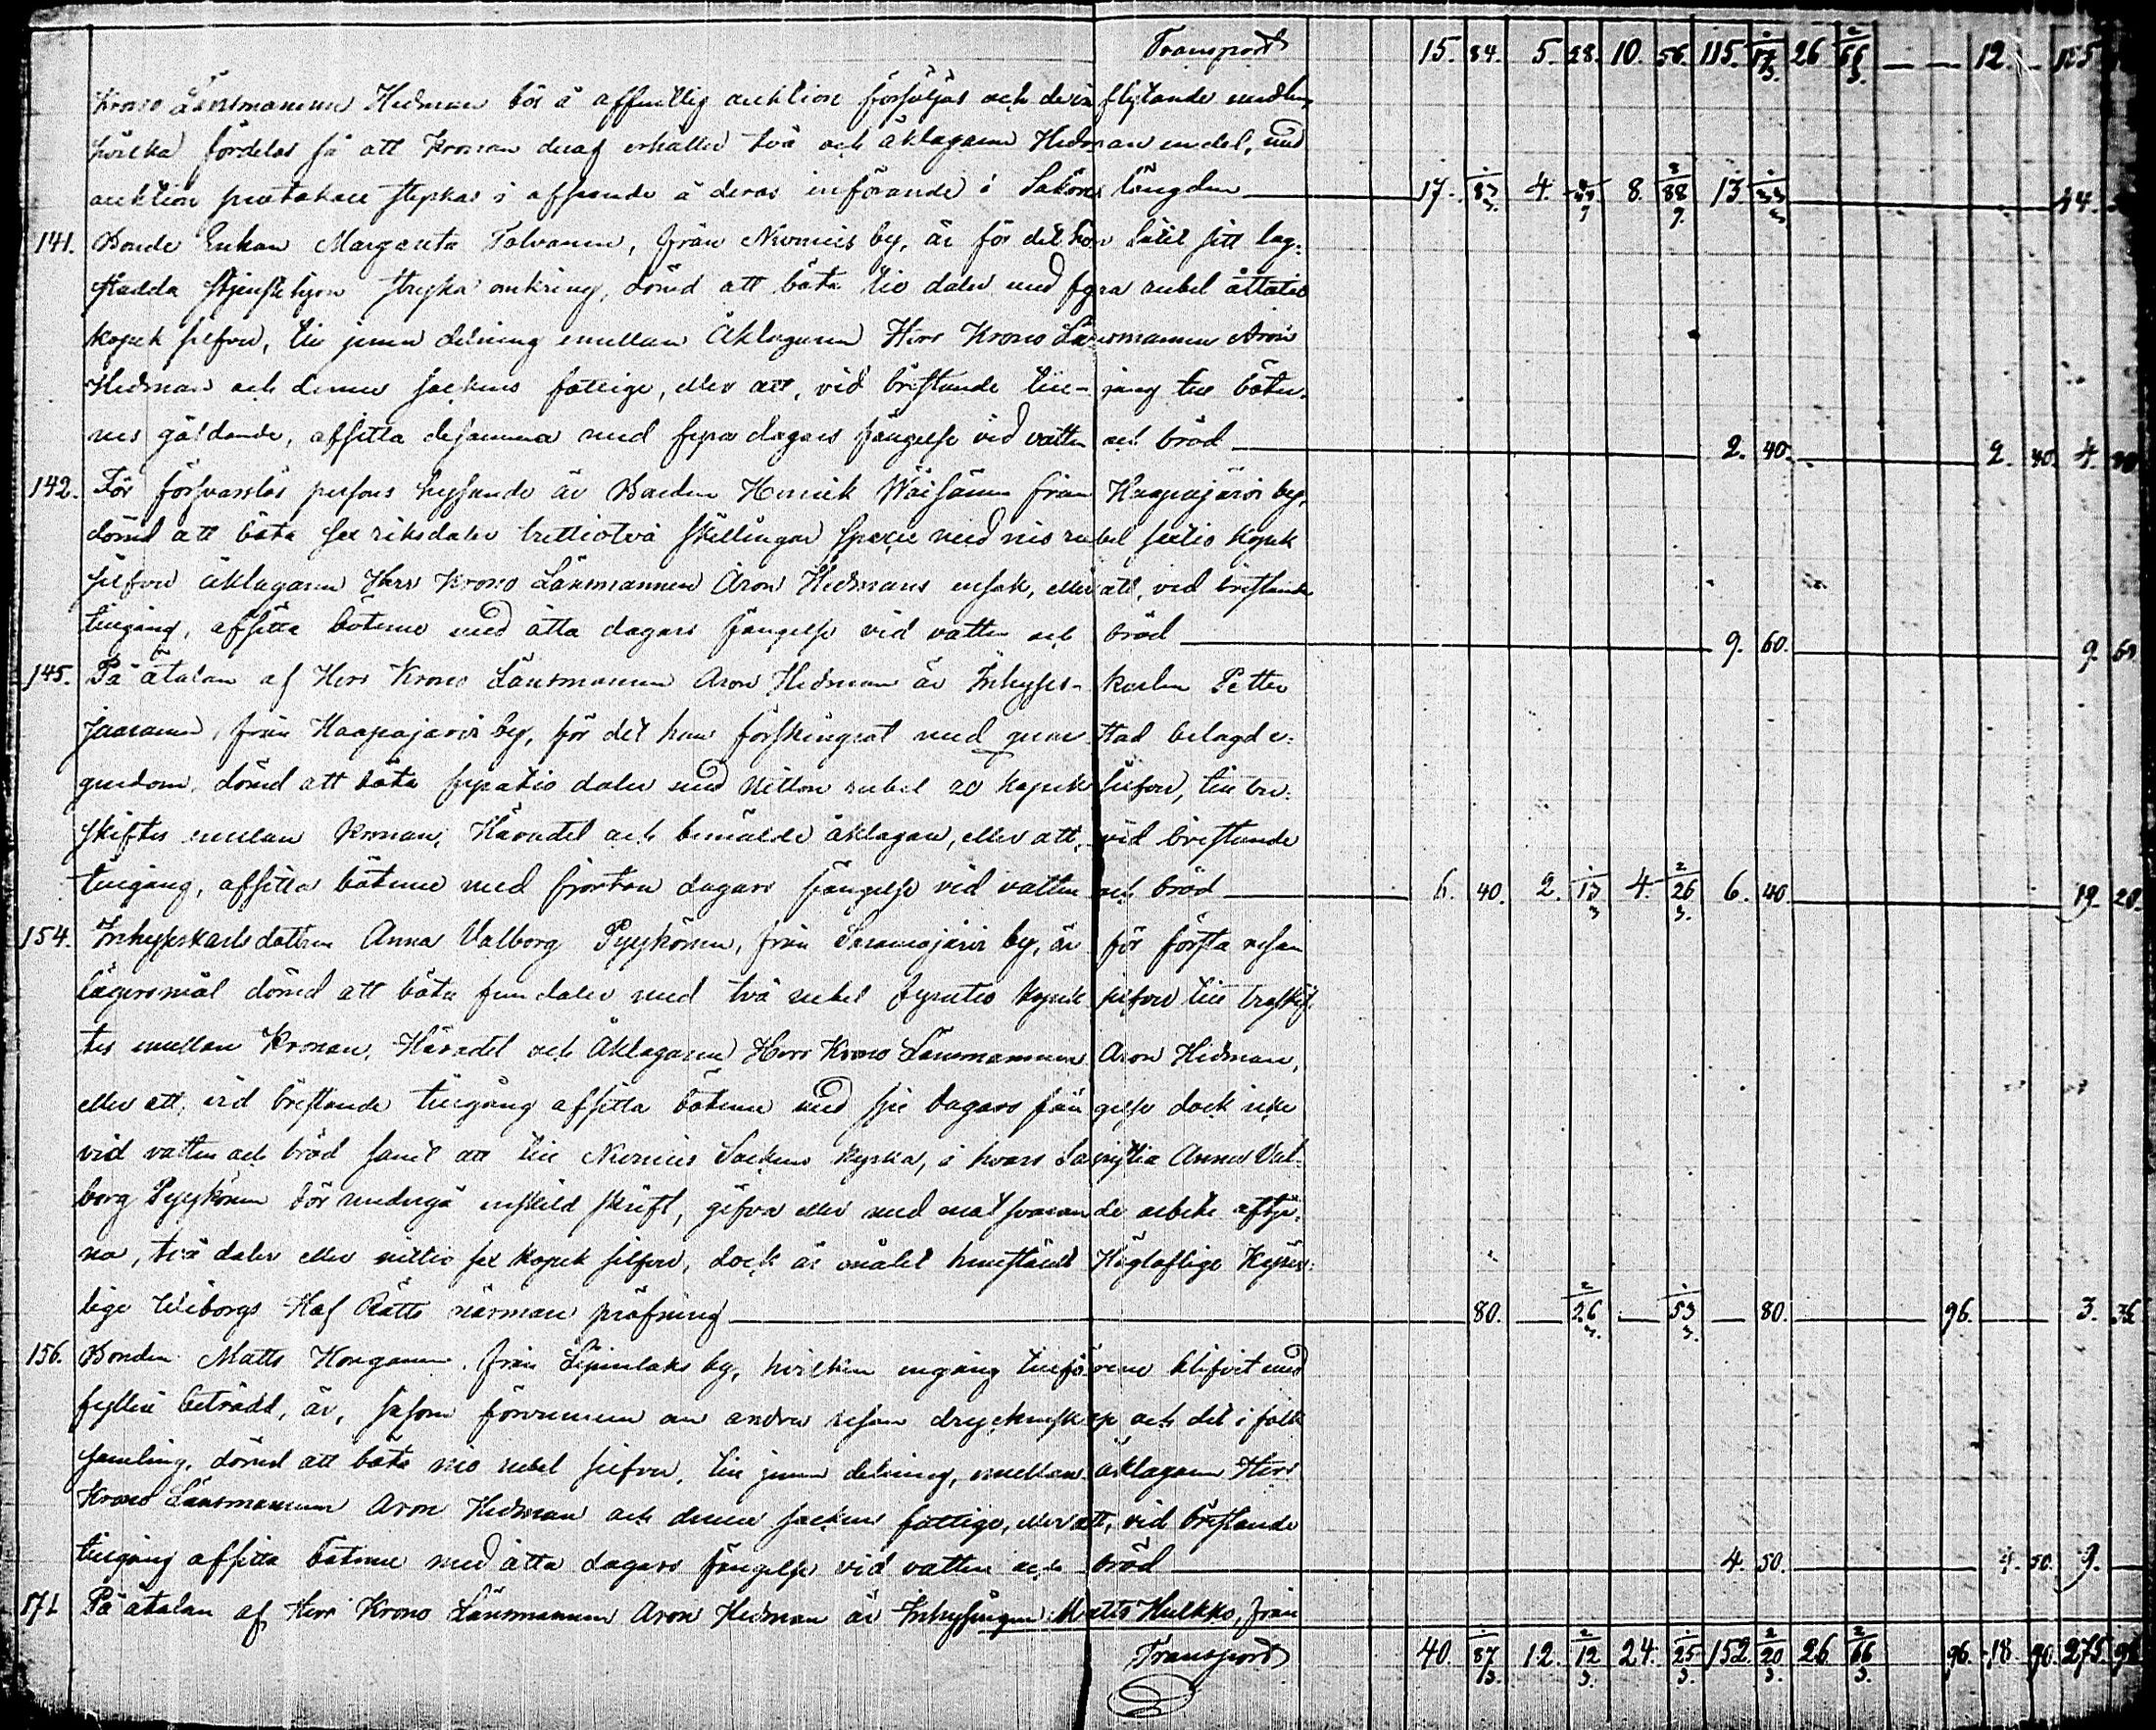 Transport 15. 84. 5. 28. 10. 56. 115. 26 12. 125
Krono Länsmannen Hedman bör å offentlig auktion försäljas och deri flytande medlen
hvilka fördelas så att Kronan deraf erhåller två och åklagaren Hedman en del, med
auktion protokoll styrkas i afseende å deras införande i Saköres längden 17. 4. 8. 88 13 33 44.
141. Bonde Enkan Margareta Tolvanen, från Nurmis by, är för det hon låtit sitt lag-
stadda tjenstehjon stryka omkring, dömd att böta tio daler med fyra rubel åttatio
kopek silfver, till jemn delning emellan åklagaren Herr Krono Länsmannen Aron
Hedman och denne sockens fattige, eller att, vid bristande till- gång till böter-
nes gäldande, afsitta desamma med fyra dagars fängelse vid vatten och bröd 2. 40. 2. 40. 4. 80
142. För försvarslös persons hysande är Bonden Henrik Wäisänen från Haapajärvi by,
dömd att böta sex riksdaler trettiotvå skillingar specie med nio rubel sextio kopek
silfver åklagaren Herr Krono Länsmannen Aron Hedmans ensak, eller att, vid bristande
tillgång, afsitta böterne med åtta dagars fängelse vid vatten och bröd 9. 60. 9. 60
145. På åtalan af Herr Krono Länsmannen Aron Hedman är Inhyses- karlen Petter
från Haapajärvi by, för det han förskingrat med qvar- stad belagd e-
gendom, dömd att böta fyratio daler med nitton rubel 20 kopek silfver, till tre-
skiftes emellan Kronan, Häradet och bemälde åklagare, eller att, vid bristande
tillgång, afsitta böterne med fjorton dagars fängelse vid vatten och bröd 6. 40. 2. 13 4. 26 6. 40 19. 20.
154. Inhyseskarls dottren Anna Valborg Pyykönen, från Saramojärvi by, är för första resan
lägersmål dömd att böta fem daler med två rubel fyratio kopek silfver till treskif-
tes emellan Kronan, Häradet och Åklagaren Herr Krono Länsmannen Aron Hedman,
eller att, vid bristande tillgång afsitta böterne med sju dagars fängelse dock icke
vid vatten och bröd samt att till Nurmis Sockens kyrka, i hvars Sacristia Anna Val-
borg Pyykönen bör undergå enskild skrift, gifva eller med motsvarande arbete aftje-
na, två daler eller nittio sex kopek silfver, dock är målet hemstäldt Högloflige Kejser-
lige Wiborgs Hof Rätts närmare pröfning 80. 26 53 80. 96. 3. 36
156. Bonden Matts Honganen från Lipinlaks by, hvilken engång tillförene blifvit med
fylleri beträdd, är, såsom förvunnen om andra resan dryckenskap och det i folk
samling, dömd att böta nio rubel silfver, till jemn delning, emellan åklagaren Herr
Krono Länsmannen Aron Hedman och denne sockens fattige, eller att, vid bristande
tillgång afsitta böterne med åtta dagars fängelse vid vatten och bröd 4. 50. 4. 50. 9.
171 På åtalan af Herr Krono Länsmannen Aron Hedman är Inhysingen Matts Hulkko, från
Transport 40 87 12. 12 24. 25 152. 20 26 66 96 18 90. 275. 96